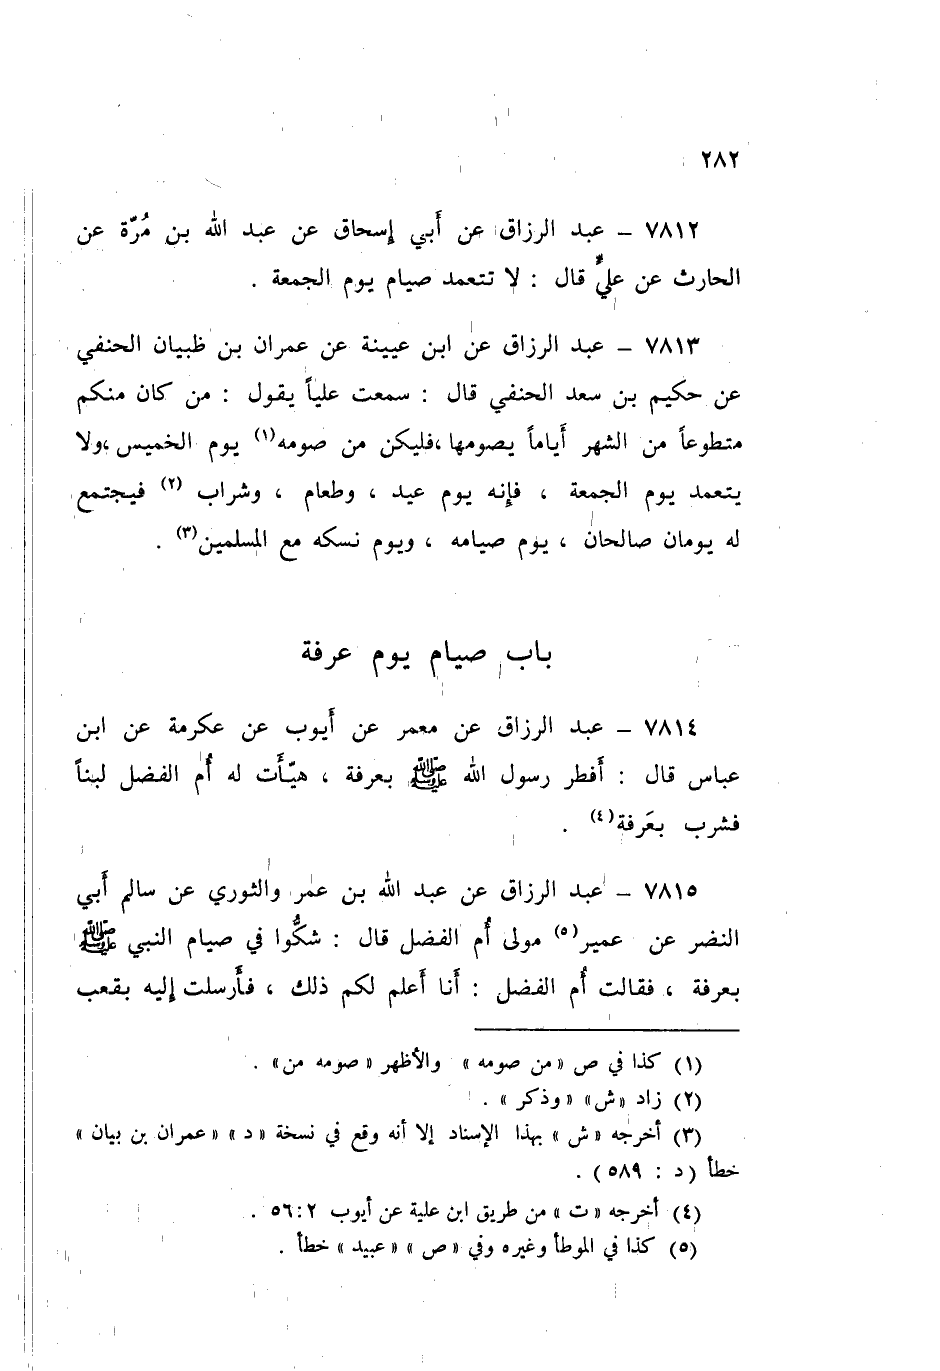 ٢٨٢
٧٨١٢ – عبد الرزاق عن أَبي إسحاق عن عبد الله بن مُرّة عن
الحارث عن عليٍّ قال : لا تتعمد صيام يوم الجمعة .
٧٨١٣ – عبد الرزاق عن ابن عيينة عن عمران بن ظبيان الحنفي
عن حكيم بن سعد الحنفي قال : سمعت علياً يقول : من كان منكم
متطوعاً من الشهر أَياماً يصومها ،فليكن من صومه(١) يوم الخميس ،ولا
يتعمد يوم الجمعة ، فإنه يوم عيد ، وطعام ، وشراب (٢) فيجتمع
له يومان صالحان ، يوم صيامه ، ويوم نسكه مع المسلمين(٣) .
باب صيام يوم عرفة
٧٨١٤ – عبد الرزاق عن معمر عن أَيوب عن عكرمة عن ابن
عباس قال : أَفطر رسول الله ﷺ بعرفة ، هيّأَت له أُم الفضل لبناً
فشرب بعَرفة(٤) .
٧٨١٥ – عبد الرزاق عن عبد الله بن عمر والثوري عن سالم أَبي
النضر عن عمير(٥) مولى أُم الفضل قال : شكُّوا في صيام النبي ﷺ
بعرفة ، فقالت أُم الفضل : أَنا أَعلم لكم ذلك ، فأَرسلت إليه بقعب
(١) كذا في ص «من صومه» والأظهر «صومه من» .
(٢) زاد «ش» «وذكر» .
(٣) أخرجه «ش» بهذا الإسناد إلا أنه وقع في نسخة «د» «عمران بن بيان»
خطأ (د : ٥٨٩) .
(٤) أخرجه «ت» من طريق ابن علية عن أيوب ٢:٥٦ .
(٥) كذا في الموطأ وغيره وفي «ص» «عبيد» خطأ .